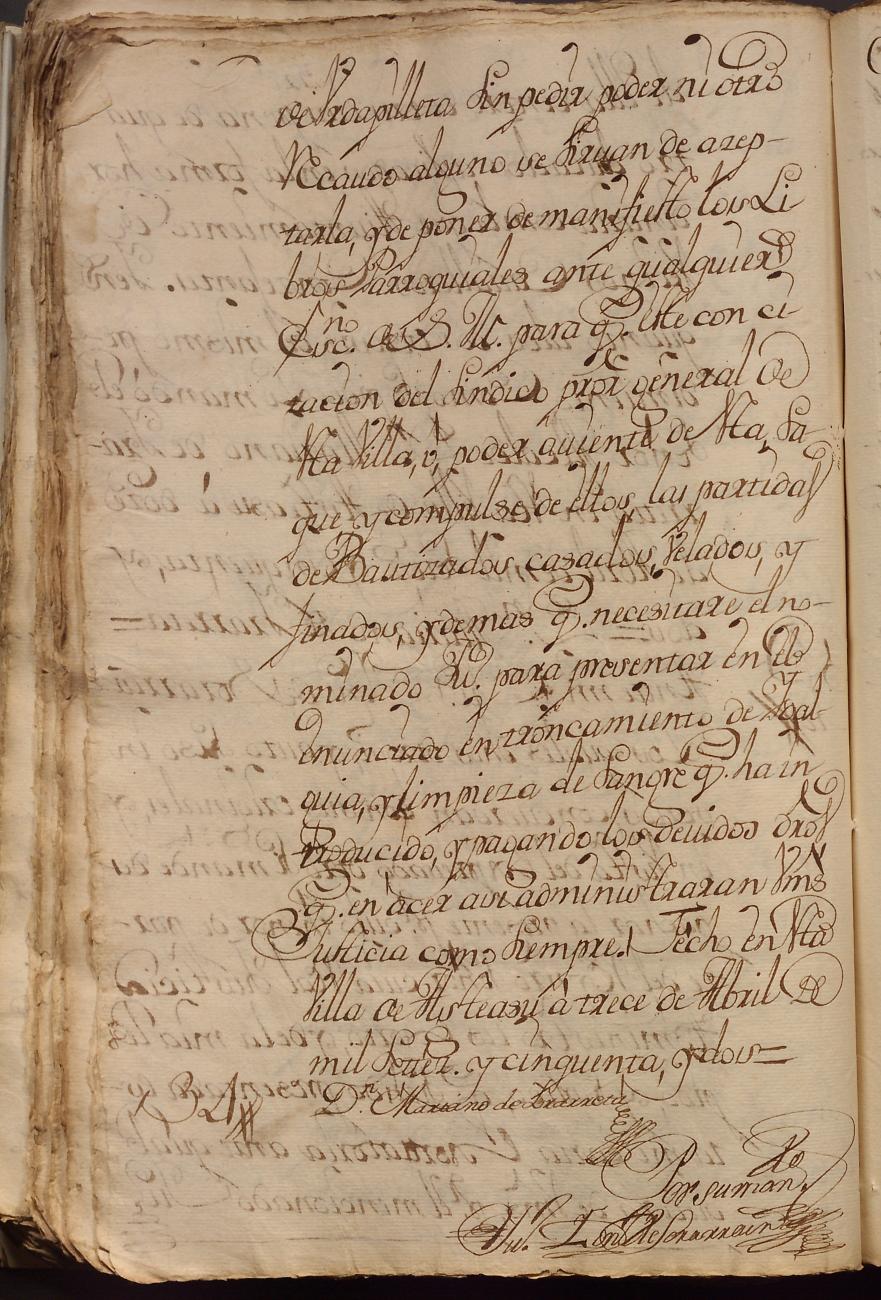 de Vrdapilleta sin pedir poder ni otro
Recaudo alguno se siruan de azep-
tarla, y de poner de manifiesto los Li
bros Parroquiales ante qualquier
Essno. de S. M. para q. este con ci
tacion del sindico pror. general de
esta Villa, o, poder auiente de esta, sa
que, y compulse de ellos, las partidas
de Bautizados, casados, Velados, y
finados, y demas q. necesitare el no-
minado para presentar en el
enunciado entroncamiento de
guia, y limpieza de sangre q. ha in
troducido, y pagando los deuidos dros
q. en acer asi administraran Vms
Justicia como siempre. Fecho en esta
Villa de Asteasu à trece de Abril de
mil setez. y cinquenta, y dos=
Dn. Mariano de Ibarreta
Por su man.do